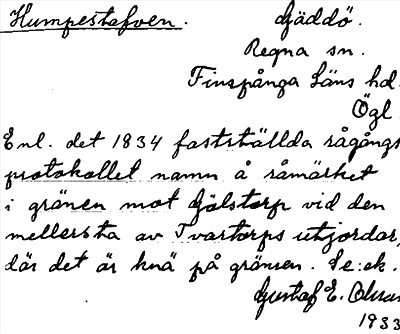 Humpestafven. Gäddö.
Regna sn.
Finspånga Läns hd.
Ögl.
Enl. det 1834 fastställda rågångs
protokollet namn å råmärket
i gränen mot Gölstorp vid den
mellersta av Tvartorps utjordar,
där det är knä på gränsen. Se: ek.
Gustaf E. Olsson
1933